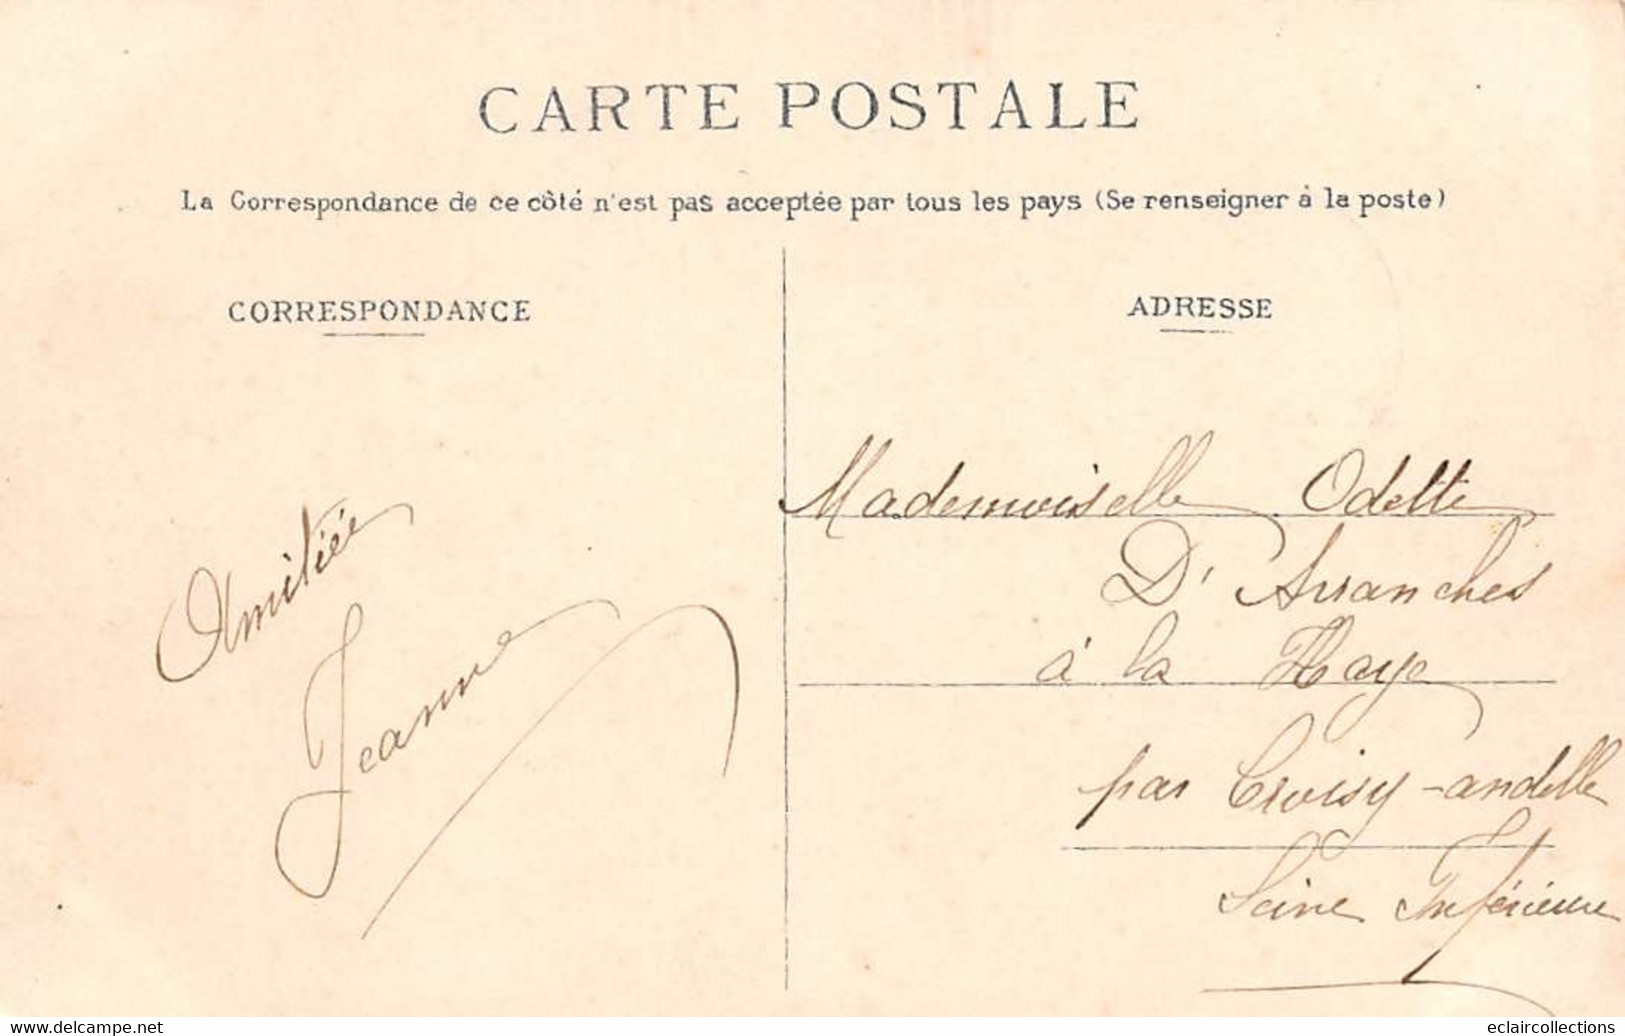 CARTE POSTALE
La Correspondance de ce côté n'est pas acceptée par tous les pays (Se renseigner à la poste)
CORRESPONDANCE
Amitiée
Jeanne
ADRESSE
Mademoiselle Odette
D'Avranches
à la Haye
par Croisy-andelle
Seine Inférieure
www.delcampe.net
eclaircollections